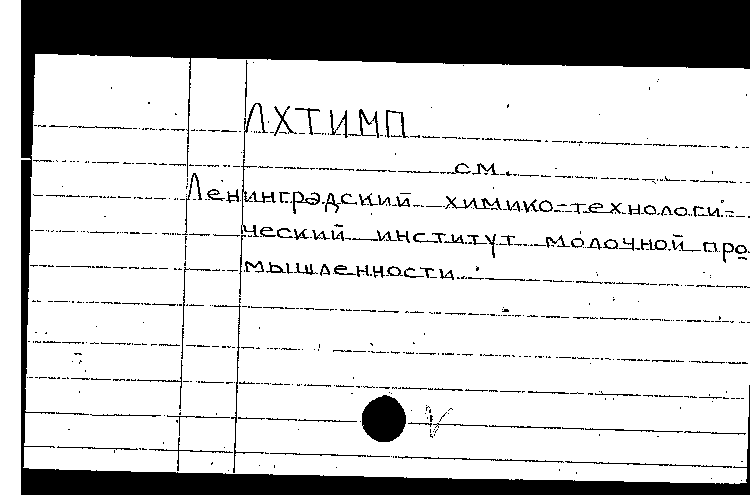 ЛХТИМП
см.
Ленинградский химико-технологи-
ческий институт молочной про
мышленности.